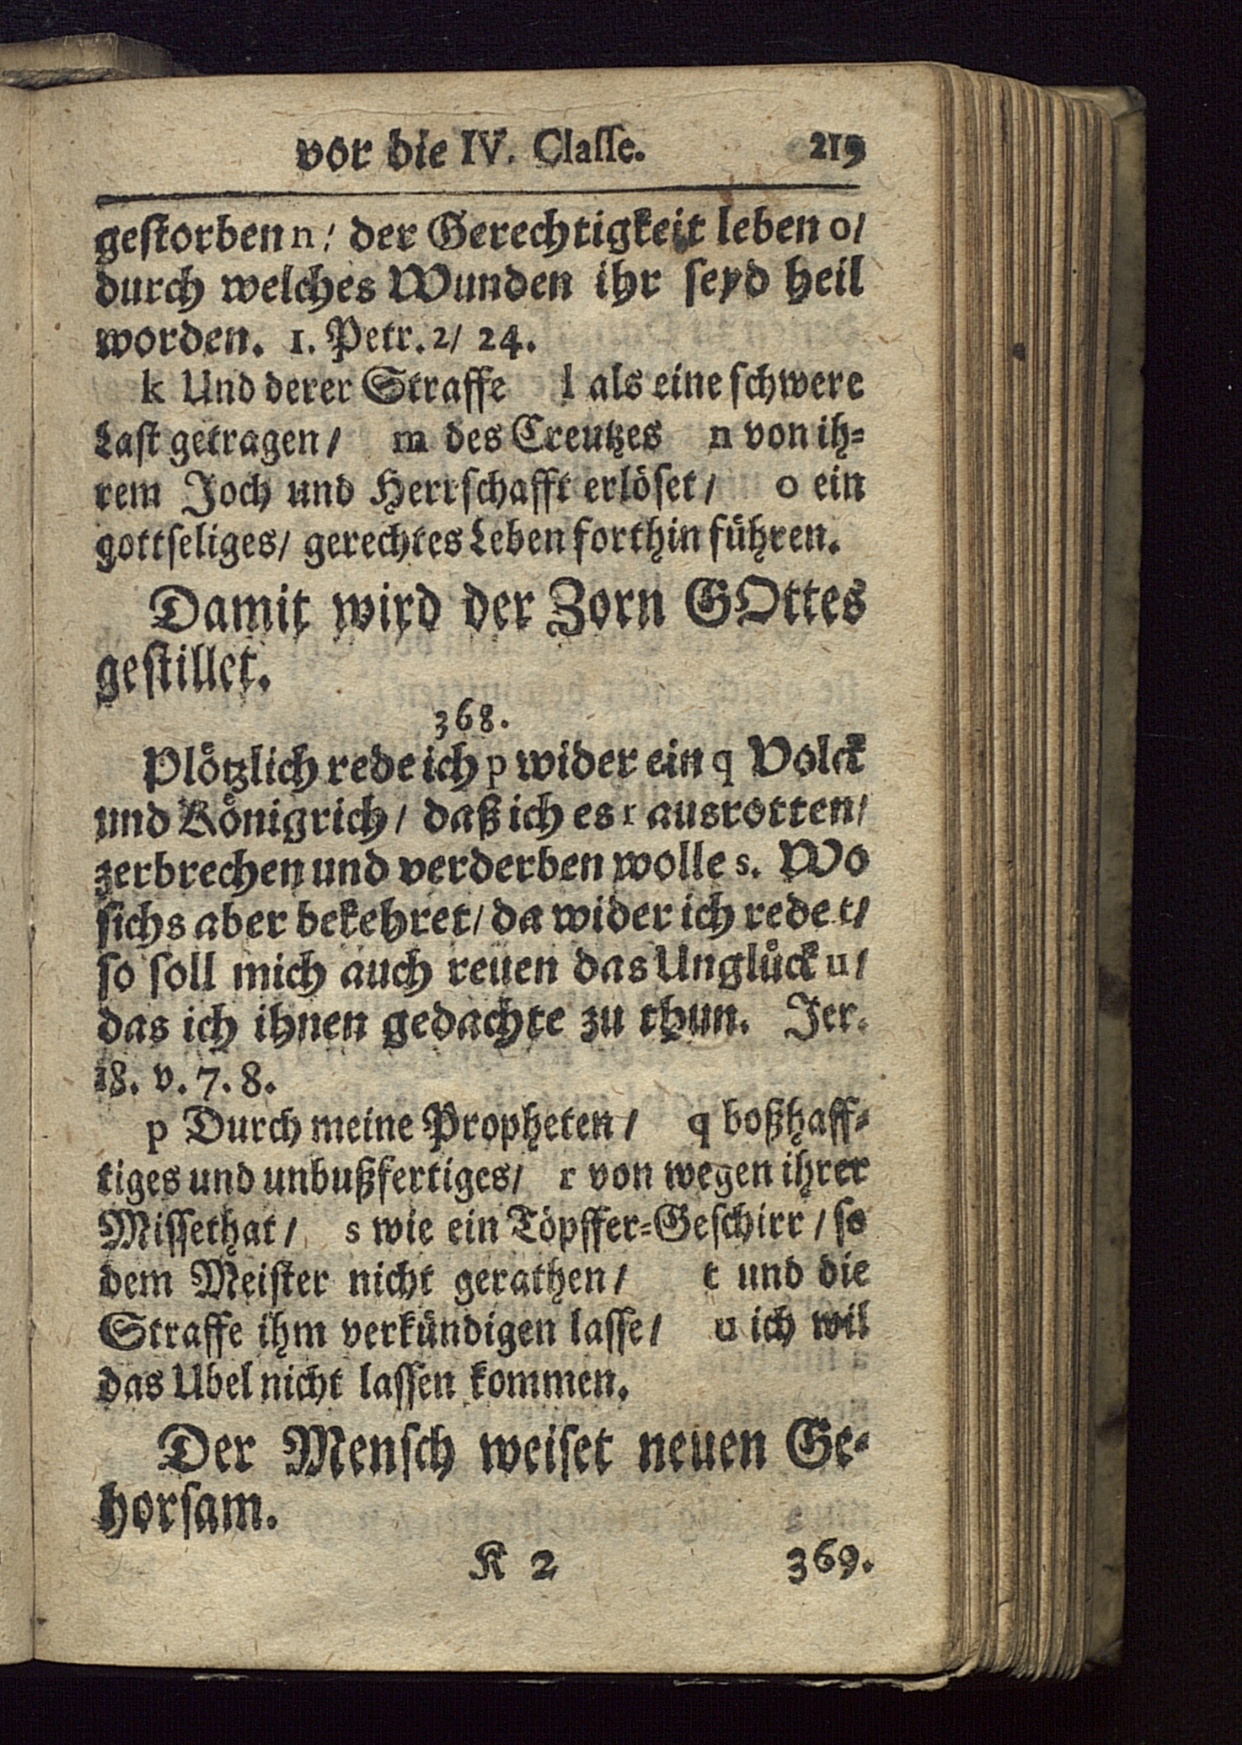 vor die IV. Classe. 219
gestorben n/ der Gerechtigkeit leben o/
durch welches Wunden ihr seyd heil
worden. 1. Petr. 2/ 24.
k Und derer Straffe l als eine schwere
Last getragen/ m des Creutzes n von ih=
rem Joch und Herrschafft erlöset/ o ein
gottseliges/ gerechtes Leben forthin führen.
Damit wird der Zorn GOttes
gestillet.
368.
Plötzlich rede ich p wider ein q Volck
und Königrich/ daß ich es r ausrotten/
zerbrechen und verderben wolle s. Wo
sichs aber bekehret/ da wider ich rede t/
so soll mich auch reuen das Unglück u/
das ich ihnen gedachte zu thun. Jer.
18. v. 7. 8.
p Durch meine Propheten/ q boßhaff=
tiges und unbußfertiges/ r von wegen ihrer
Missethat/ s wie ein Töpffer=Geschirr/ so
dem Meister nicht gerathen/ t und die
Straffe ihm verkündigen lasse/ u ich wil
das Ubel nicht lassen kommen.
Der Mensch weiset neuen Ge=
horsam.
K 2 369.